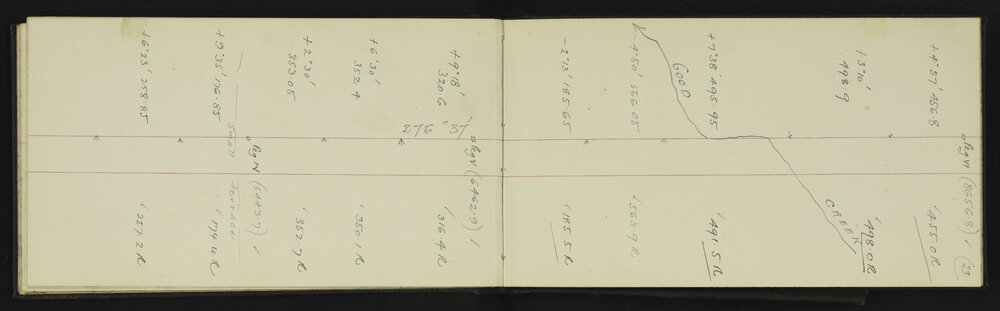 +6°23' 258.85
' 257.2 R
+9°35' 176.85
small terrace
' 174.4 R
Peg N (5443.7) ✓
+2°30'
353.05
' 352.7 R
+6°30'
352.4
' 350.1 R
+9°18'
320.6
' 316.4 R
Peg V (6462.9) ✓
-2°13' 185.65
' 185.5 R
-4°50' 566.05
' 563.9 R
GOOD
+7°38' 495.95
' 491.5 R
CREEK
+3°10'
498.9
' 498.0 R
+4°57' 456.8
' 455.0 R
Peg VI (8656.8) ✓